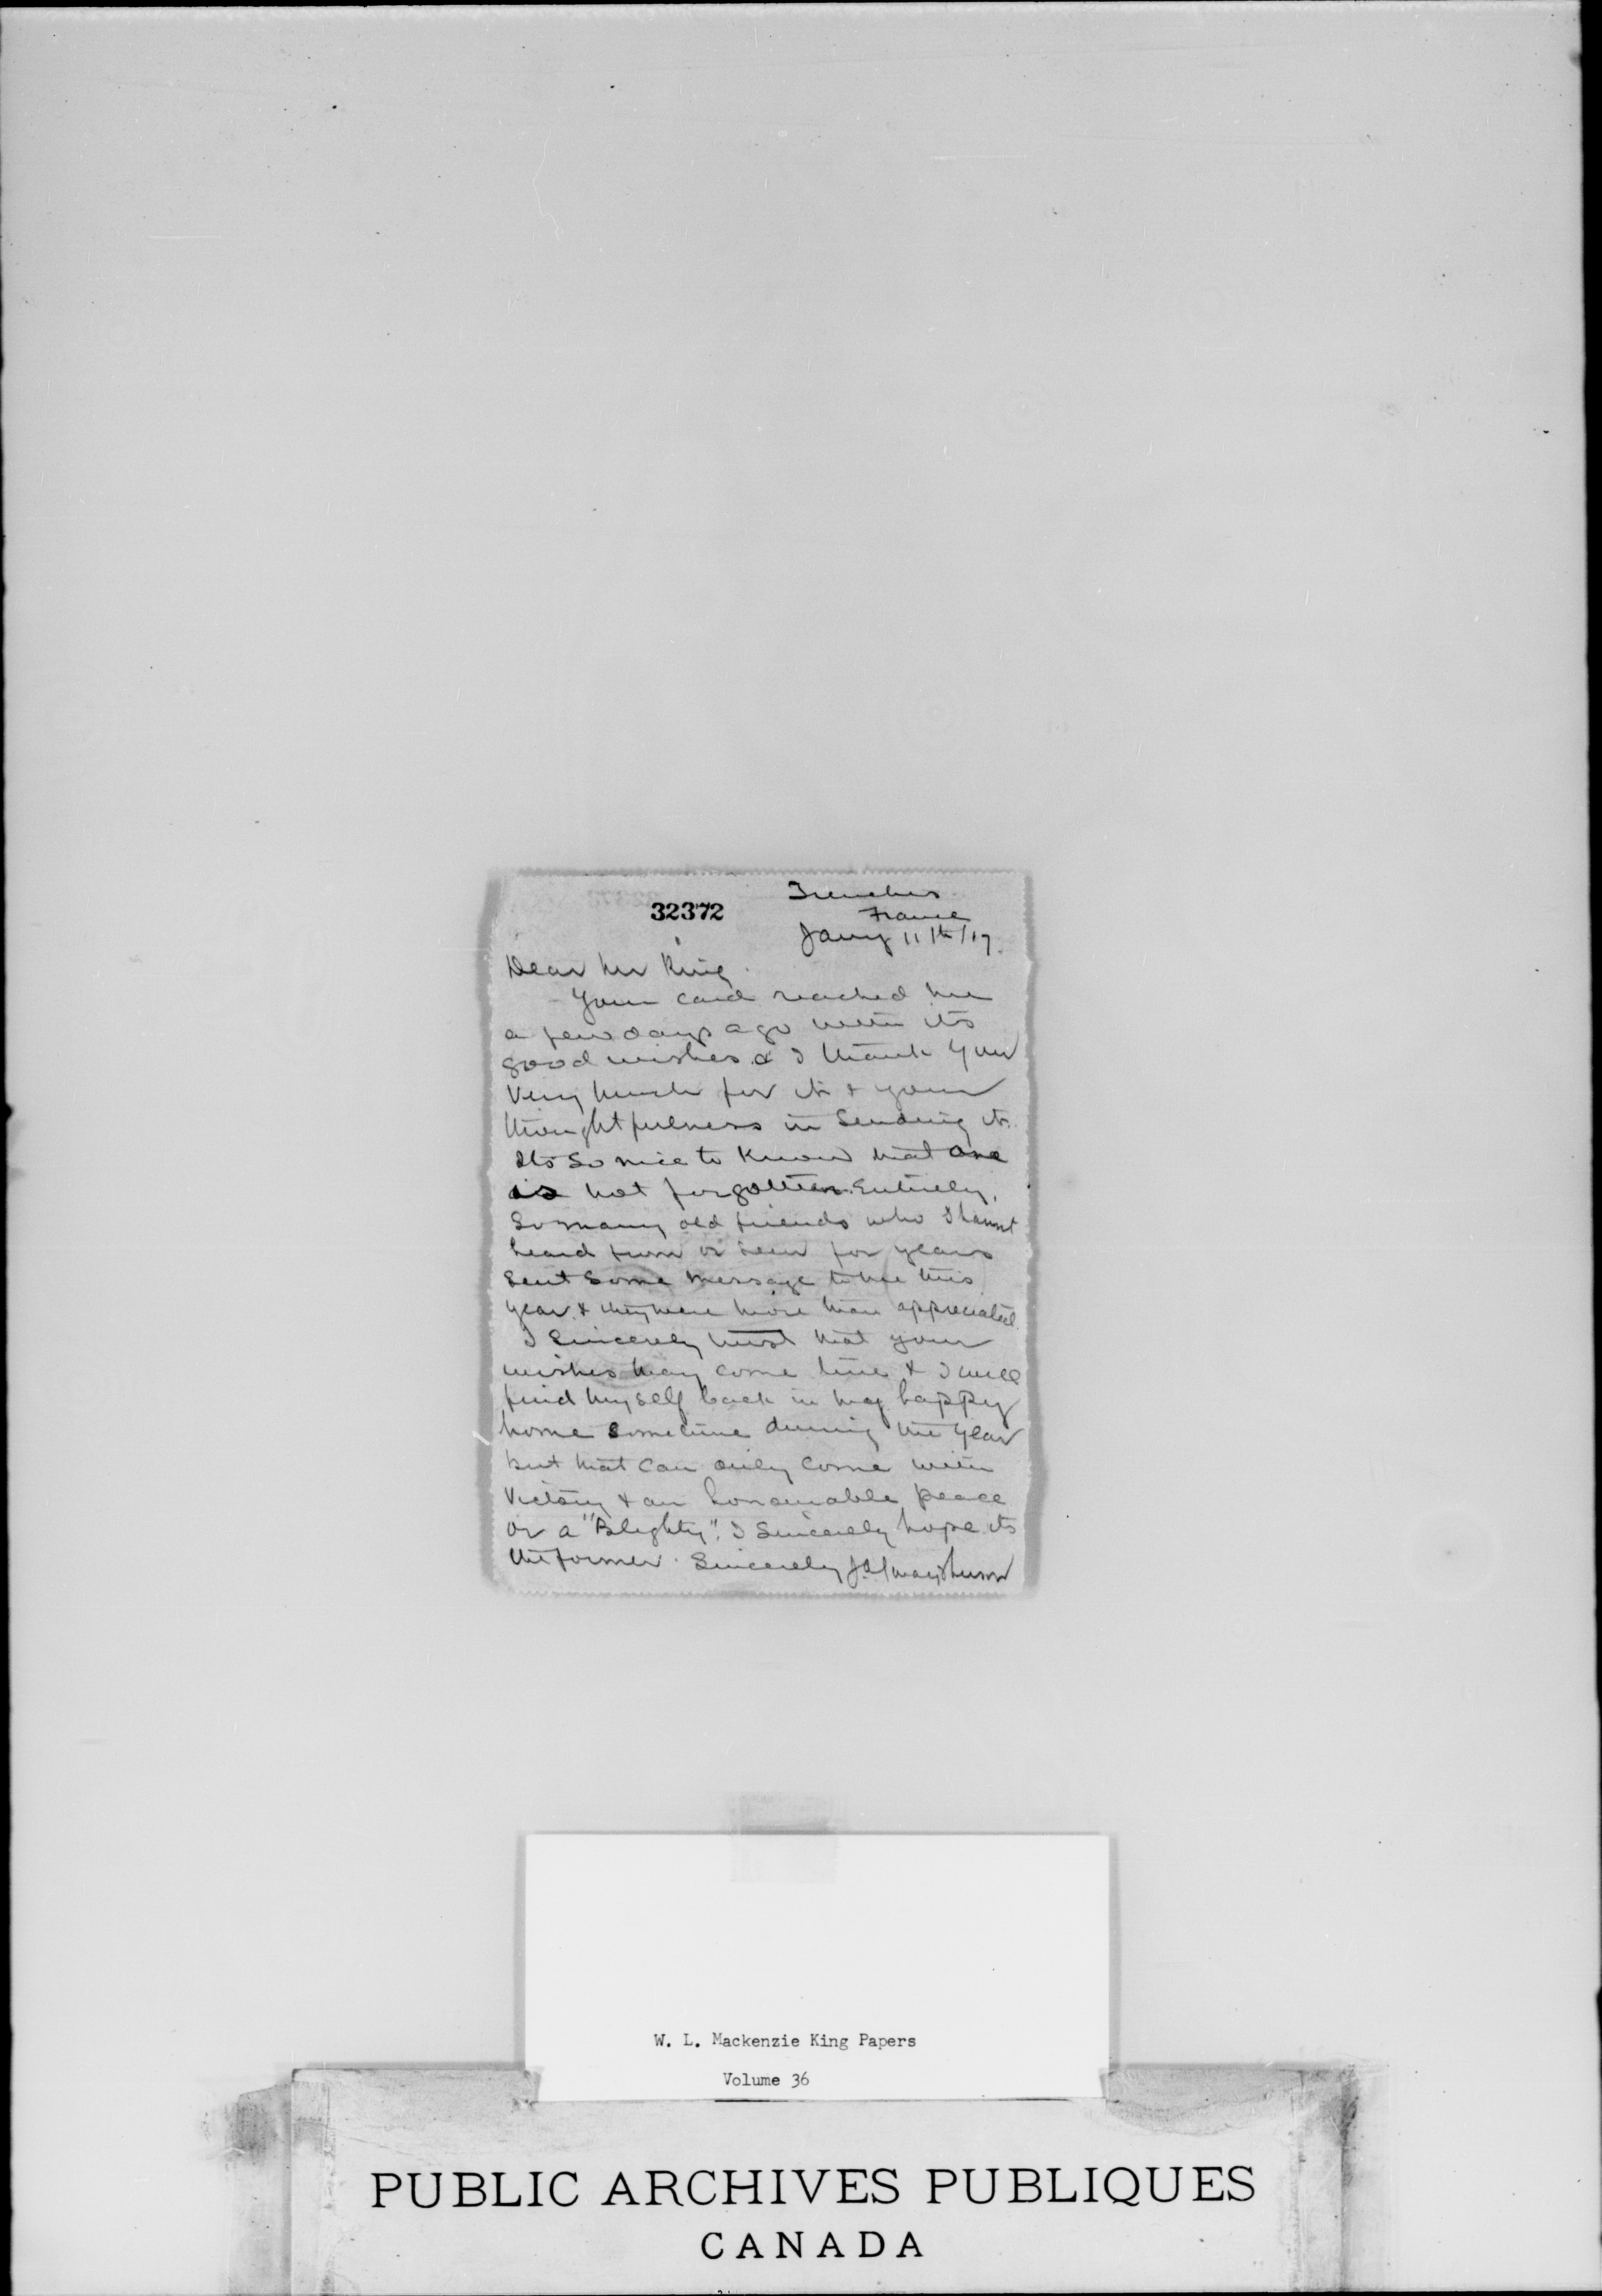 32372
Trenches
France
Jany 11th/17.
Dear Mr King.
Your card reached me
a few days ago with its
good wishes & I thank you
very much for it & your
thoughtfulness in sending it.
Its so nice to know that one
is not forgotten entirely,
so many old friends who I havnt
heard from or seen for years
sent some message to me this
year & they were more than appreciated.
I sincerely trust that your
wishes may come true & I will
find myself back in my happy
home sometime during the year
but that can only come with
victory & an honourable peace
or a "Blighty". I sincerely hope its
the former. Sincerely
W. L. Mackenzie King Papers
Volume 36
PUBLIC ARCHIVES PUBLIQUES
CANADA